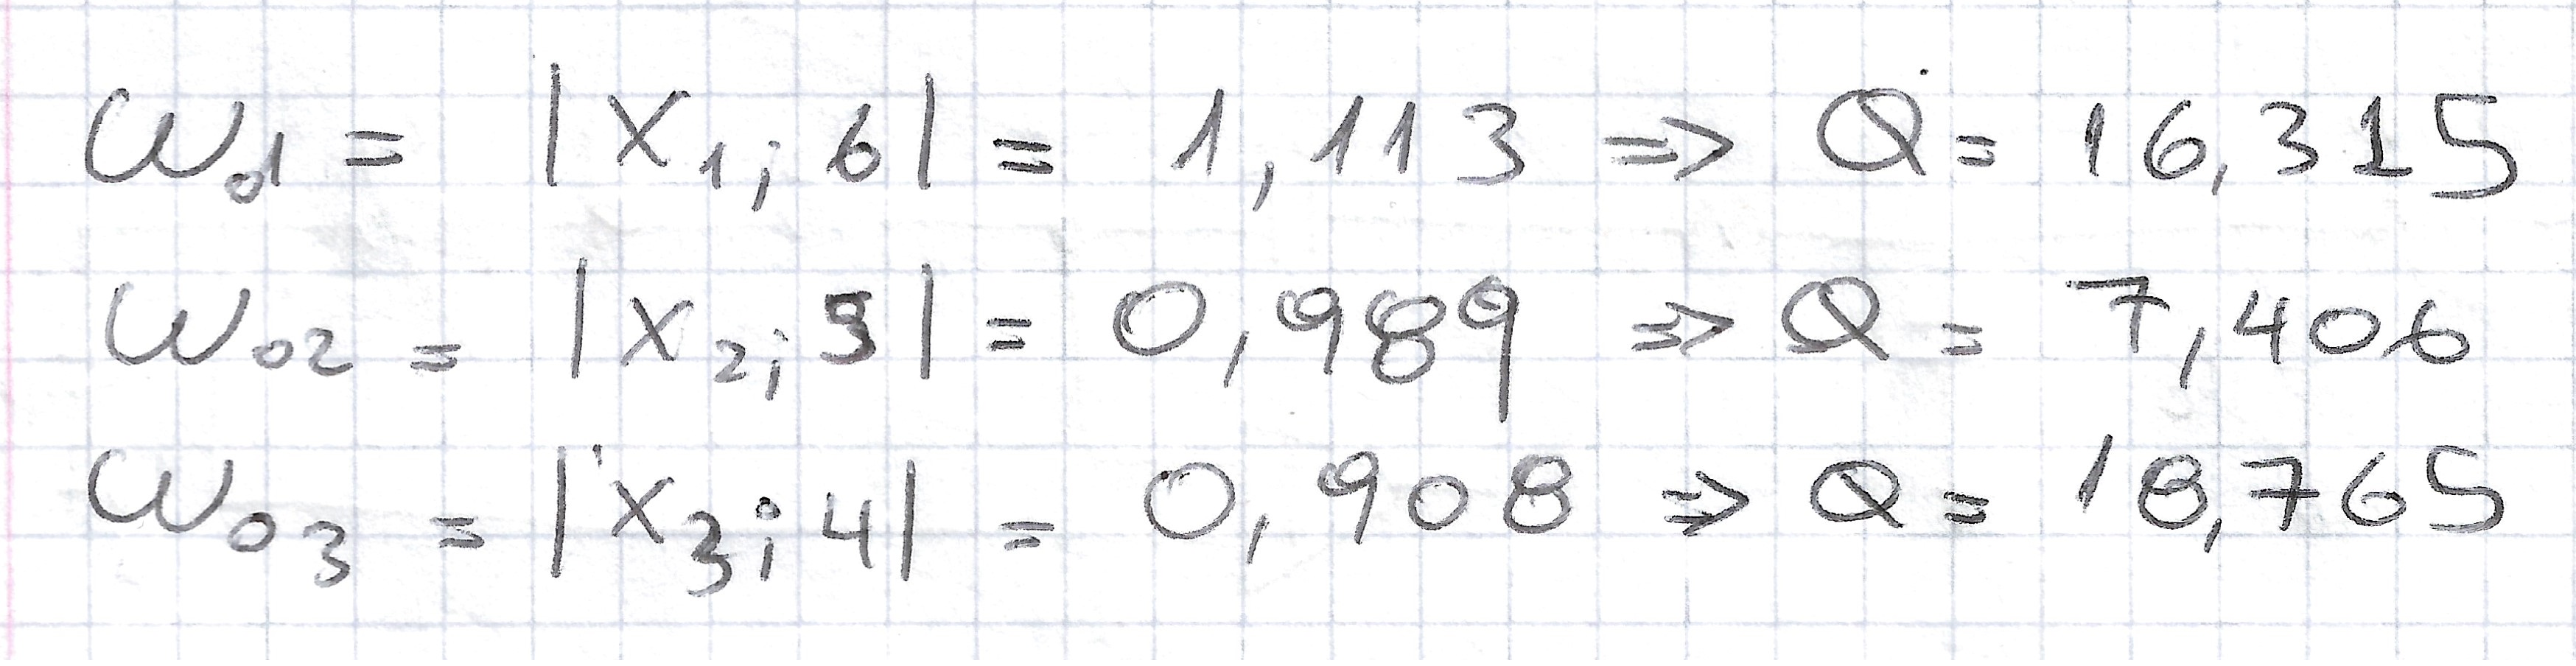 ω₀₁ = |X₁; 6| = 1,113 => Q = 16,315
ω₀₂ = |X₂; 5| = 0,989 => Q = 7,406
ω₀₃ = |X₃; 4| = 0,908 => Q = 18,765